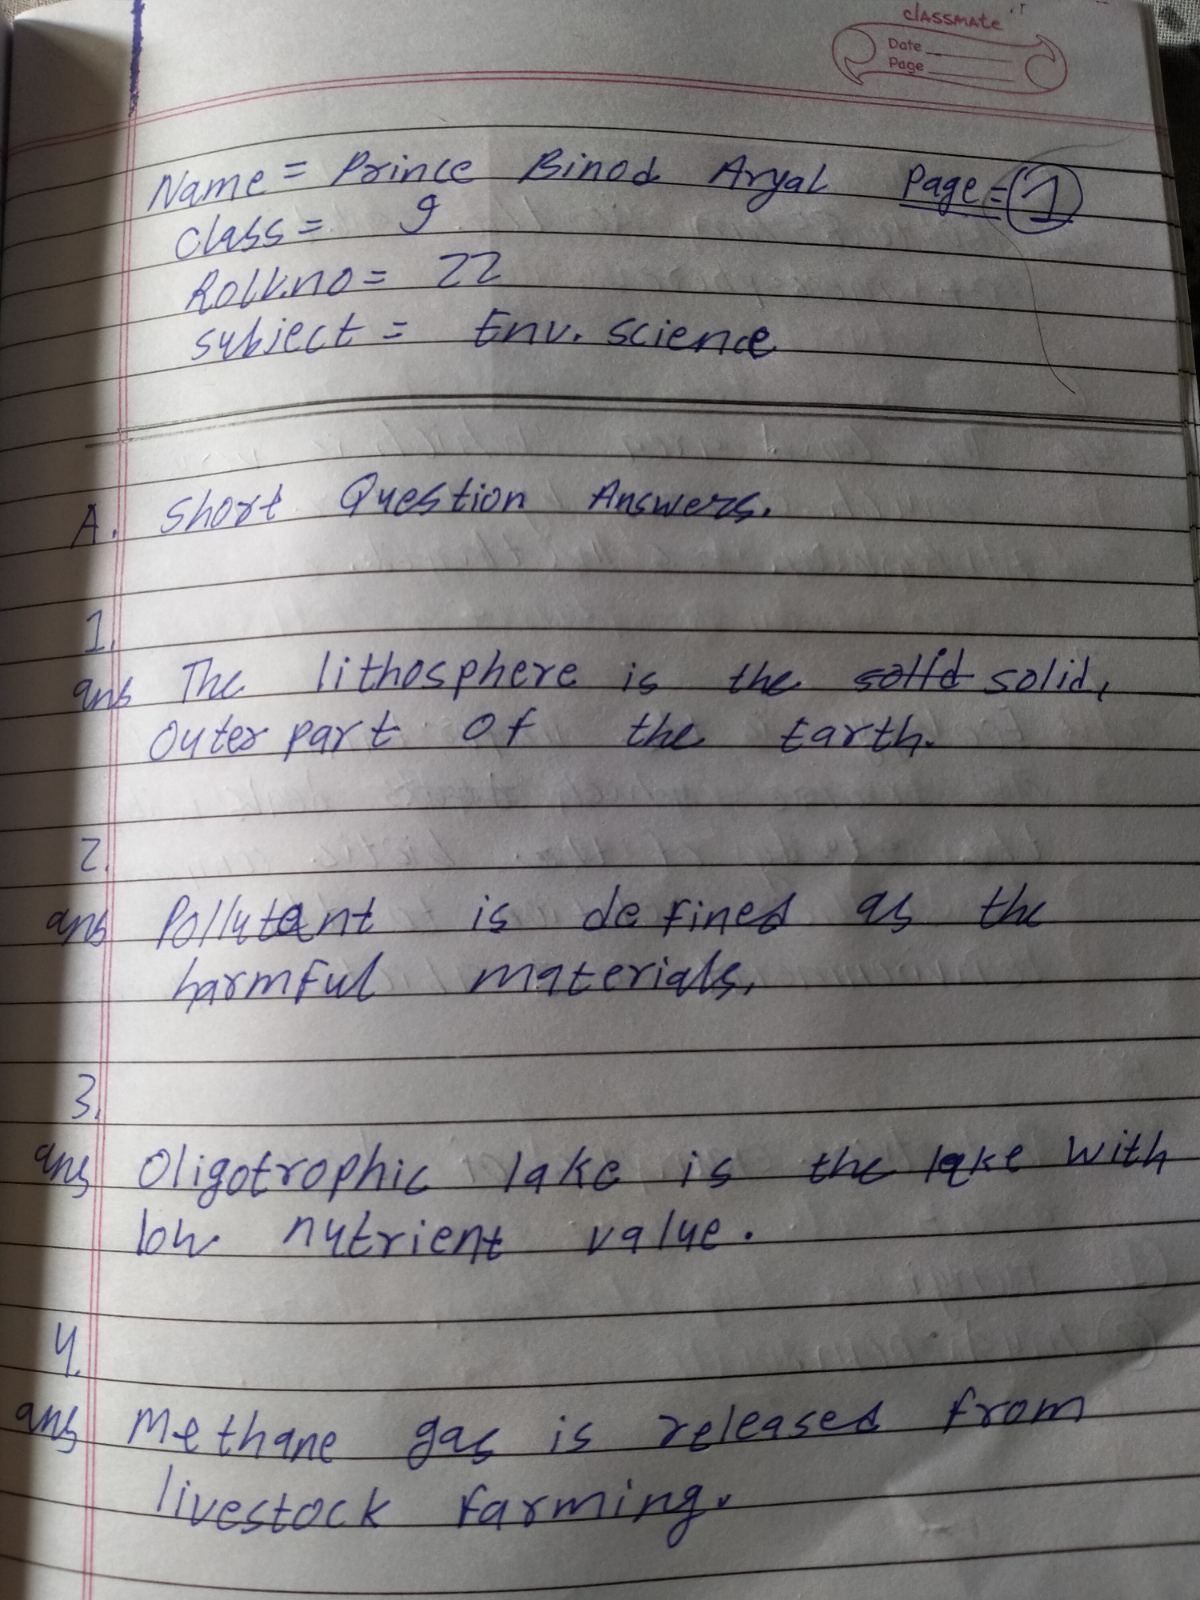 classmate
Date
Page
Name = Prince Binod Aryal Page = 1
class = 9
Roll.no = 22
subject = Env. science
A. Short Question Answers.
1.
ans The lithosphere is the solid solid,
outer part of the Earth.
2.
ans Pollutant is defined as the
harmful materials.
3.
ans Oligotrophic lake is the lake with
low nutrient value.
4.
ans Methane gas is released from
livestock farming.